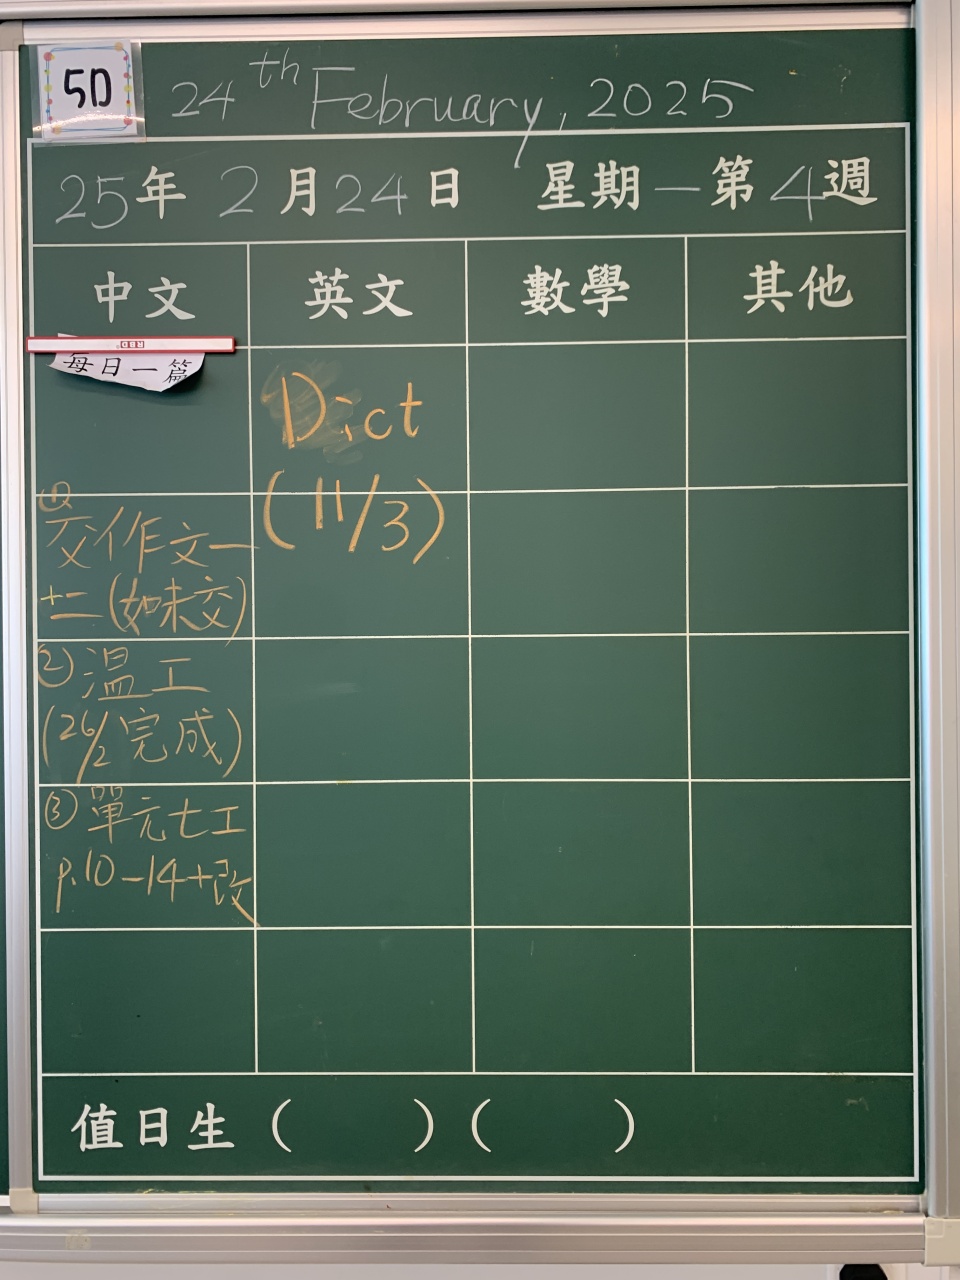 5D
24th February, 2025
25年 2月24日 星期一第4週
中文 英文 數學 其他
RBD
每日一篇
Dict
(11/3)
①交作文一
十二(如未交)
②温工
(26/2完成)
③單元七工
p.10-14+改
值日生( )( )